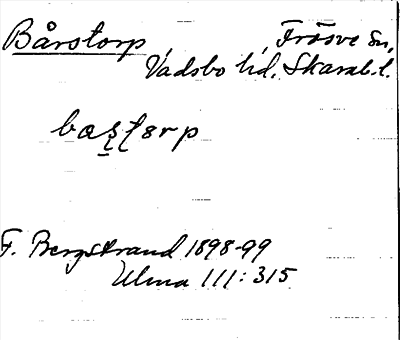 Bårstorp Fräsve sn,
Vadsbo hd, Skarab. l.
bæʂʈɵrp
F. Bergstrand 1898-99
Ulma 111:315